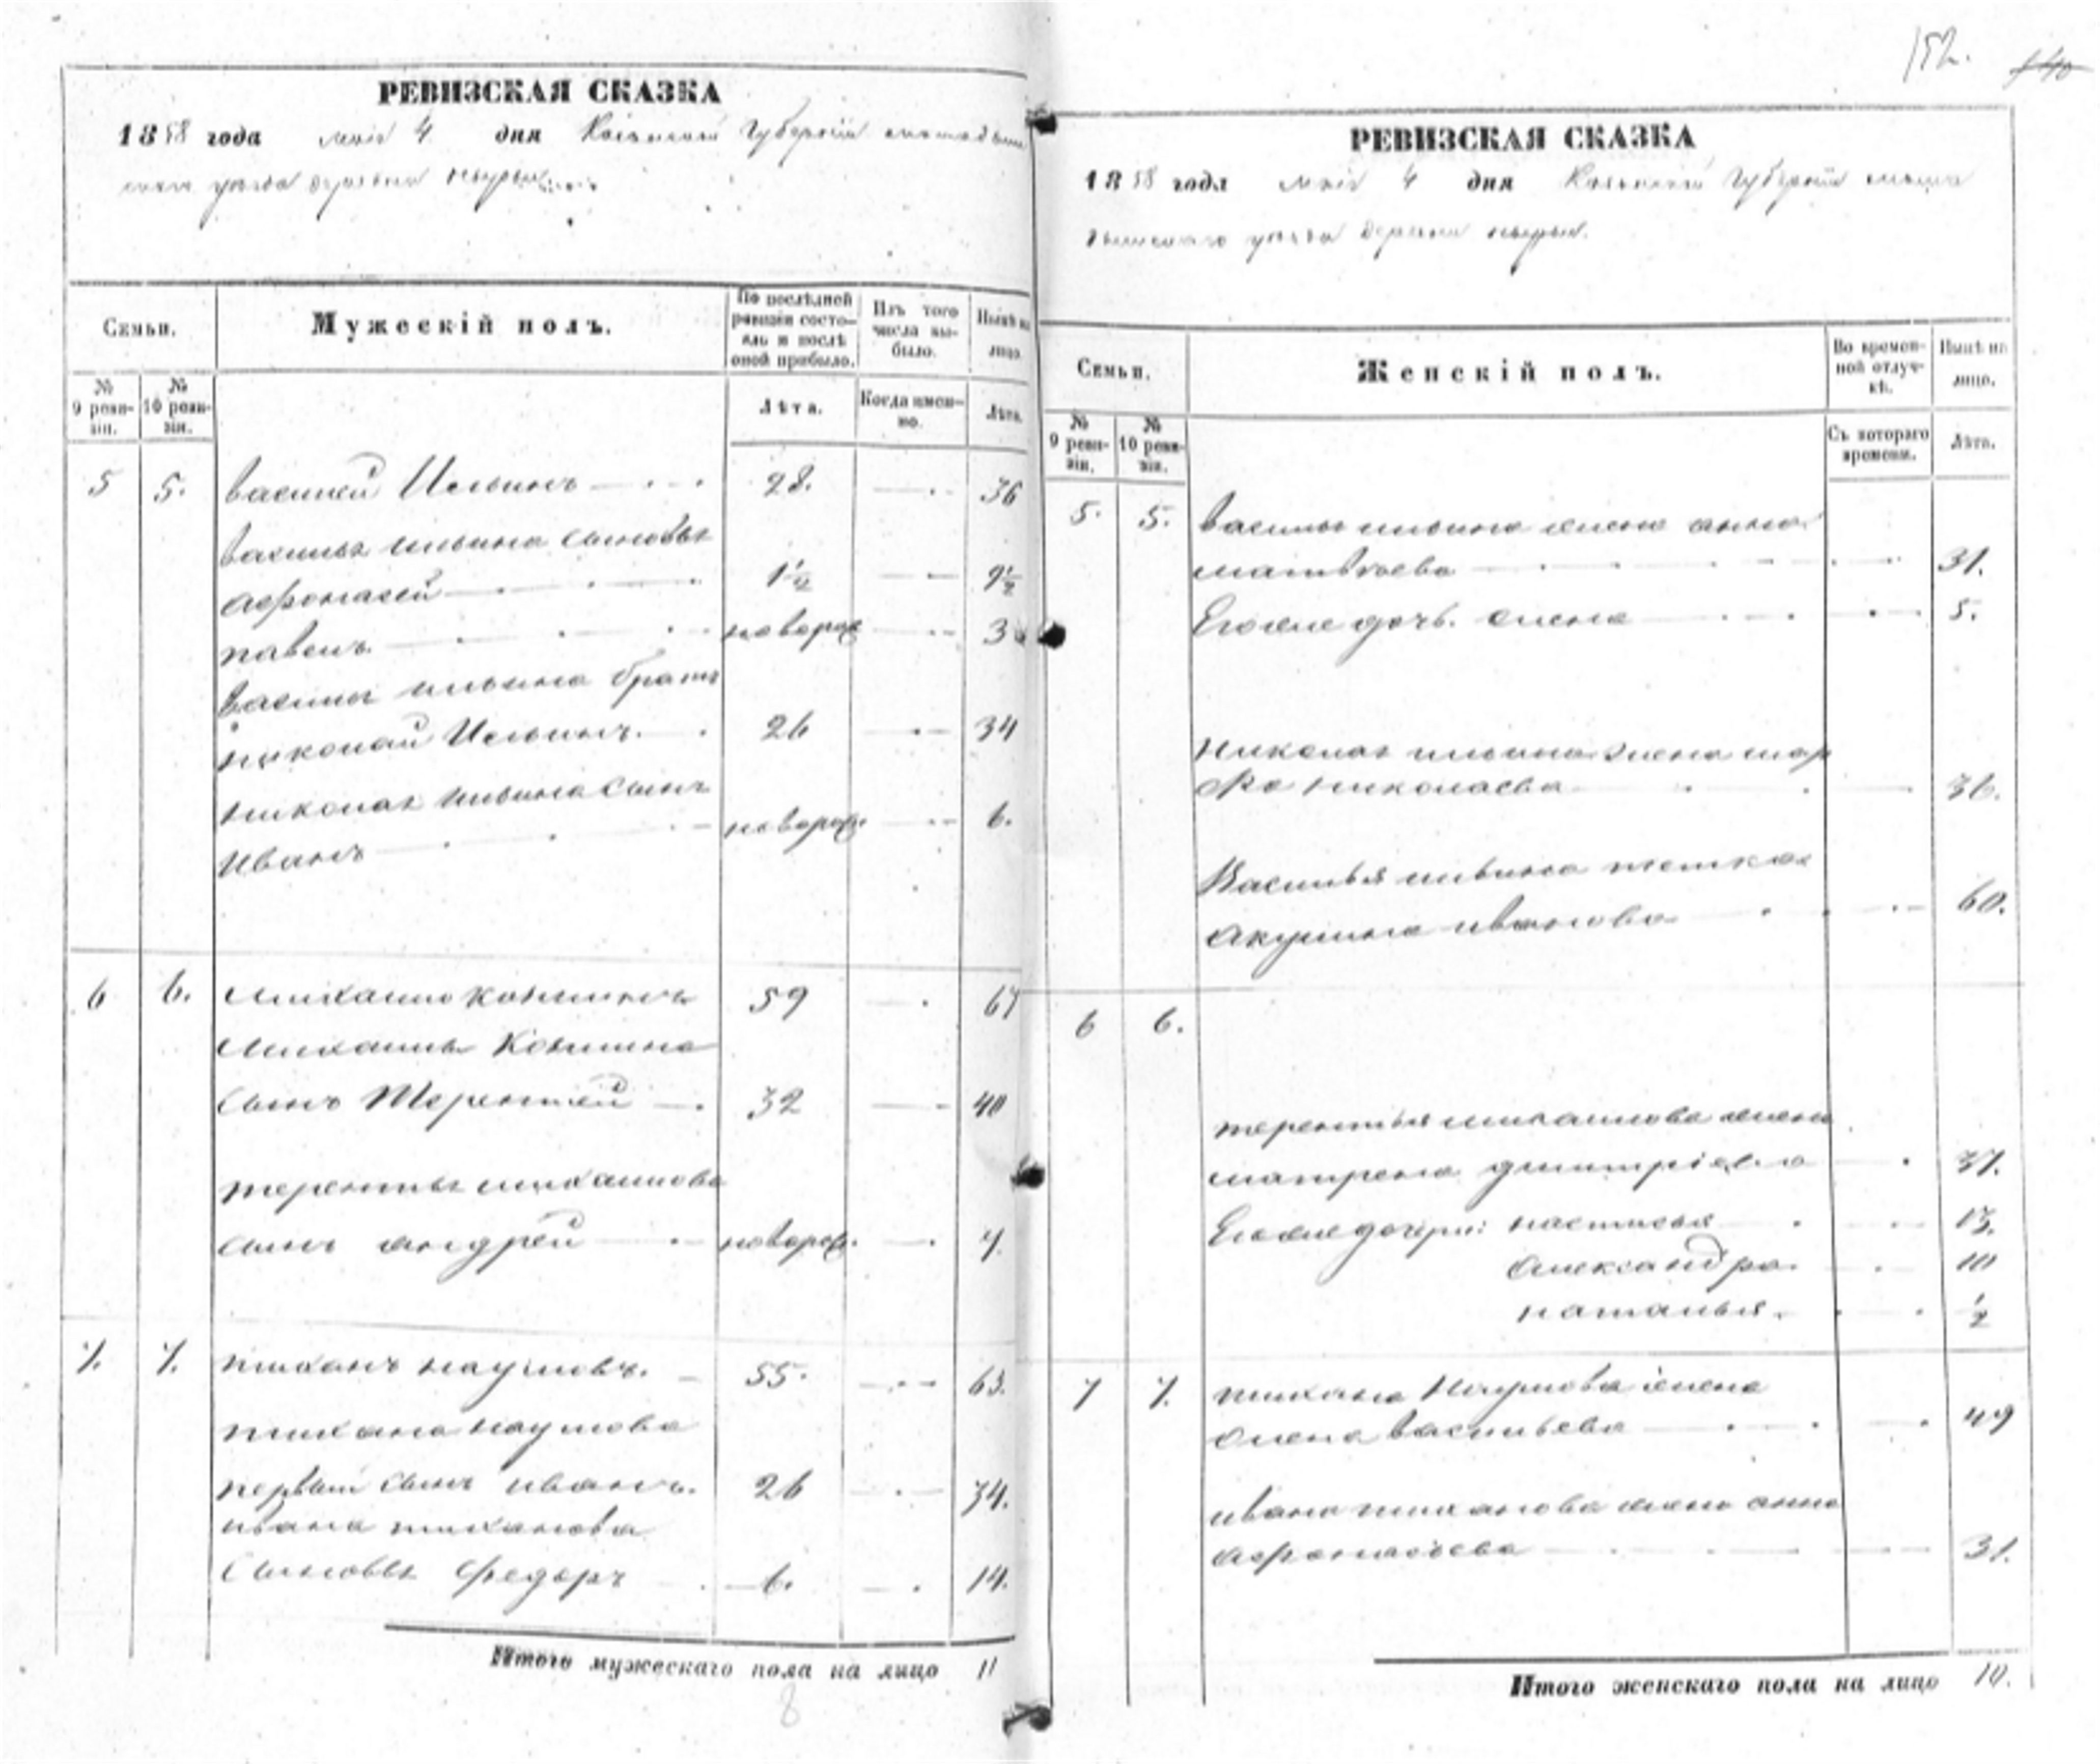 152. 140
РЕВИЗСКАЯ СКАЗКА
1858 года маія 4 дня Казанской Губерніи мамадыш
скаго уезда деревни
Семьи.
Мужескій полъ.
По послѣдней ревизіи состояль и послѣ оной прибыло.
Изъ того числа выбыло.
Нынѣ на лицо.
№ 9 ревизіи.
№ 10 ревизіи.
Лѣта.
Когда именно.
Лѣта.
5 5. василей Ильинъ 28. 36
васильа ильина сыновьа
афонасей 1 1/2 9 1/2
павелъ новорож 3
василья ильина братъ
николай Ильинъ. 26 34
николаа ильина сынъ
Иванъ новорож. 6.
6 6. михаило козминъ 59 67
михаила Козмина
сынъ Терентей 32 40
терентьа михаилова
сынъ андрей новорож. 4.
7. 7. тиханъ наумовъ. 55. 63.
тихана наумова
первый сынъ иванъ. 26 34.
ивана тиханова
Сыновьа федоръ 6. 14.
Итого мужескаго пола на лицо 11
8
РЕВИЗСКАЯ СКАЗКА
1858 года маія 4 дня Казанской Губерніи мама
дышскаго уезда деревни
Семьи.
Женскій полъ.
Во временной отлучкѣ.
Нынѣ на лицо.
№ 9 ревизіи.
№ 10 ревизіи.
Съ котораго времени.
Лѣта.
5. 5. васильа ильина жена анна
матвѣева 31.
Егоже дочь. елена 5.
Николаа ильина жена мар
фа николаева 36.
Василья ильина тетка
акулина иванова 60.
6 6.
терентья михаилова жена
матрена димитріева 37.
Егоже дочери: настасья 13.
александра. 10
наталья. 1/2
7 7. тихана Наумова жена
олена васильева 49
ивана тиханова жена анна
афонасьева 31.
Итого женскаго пола на лицо 10.